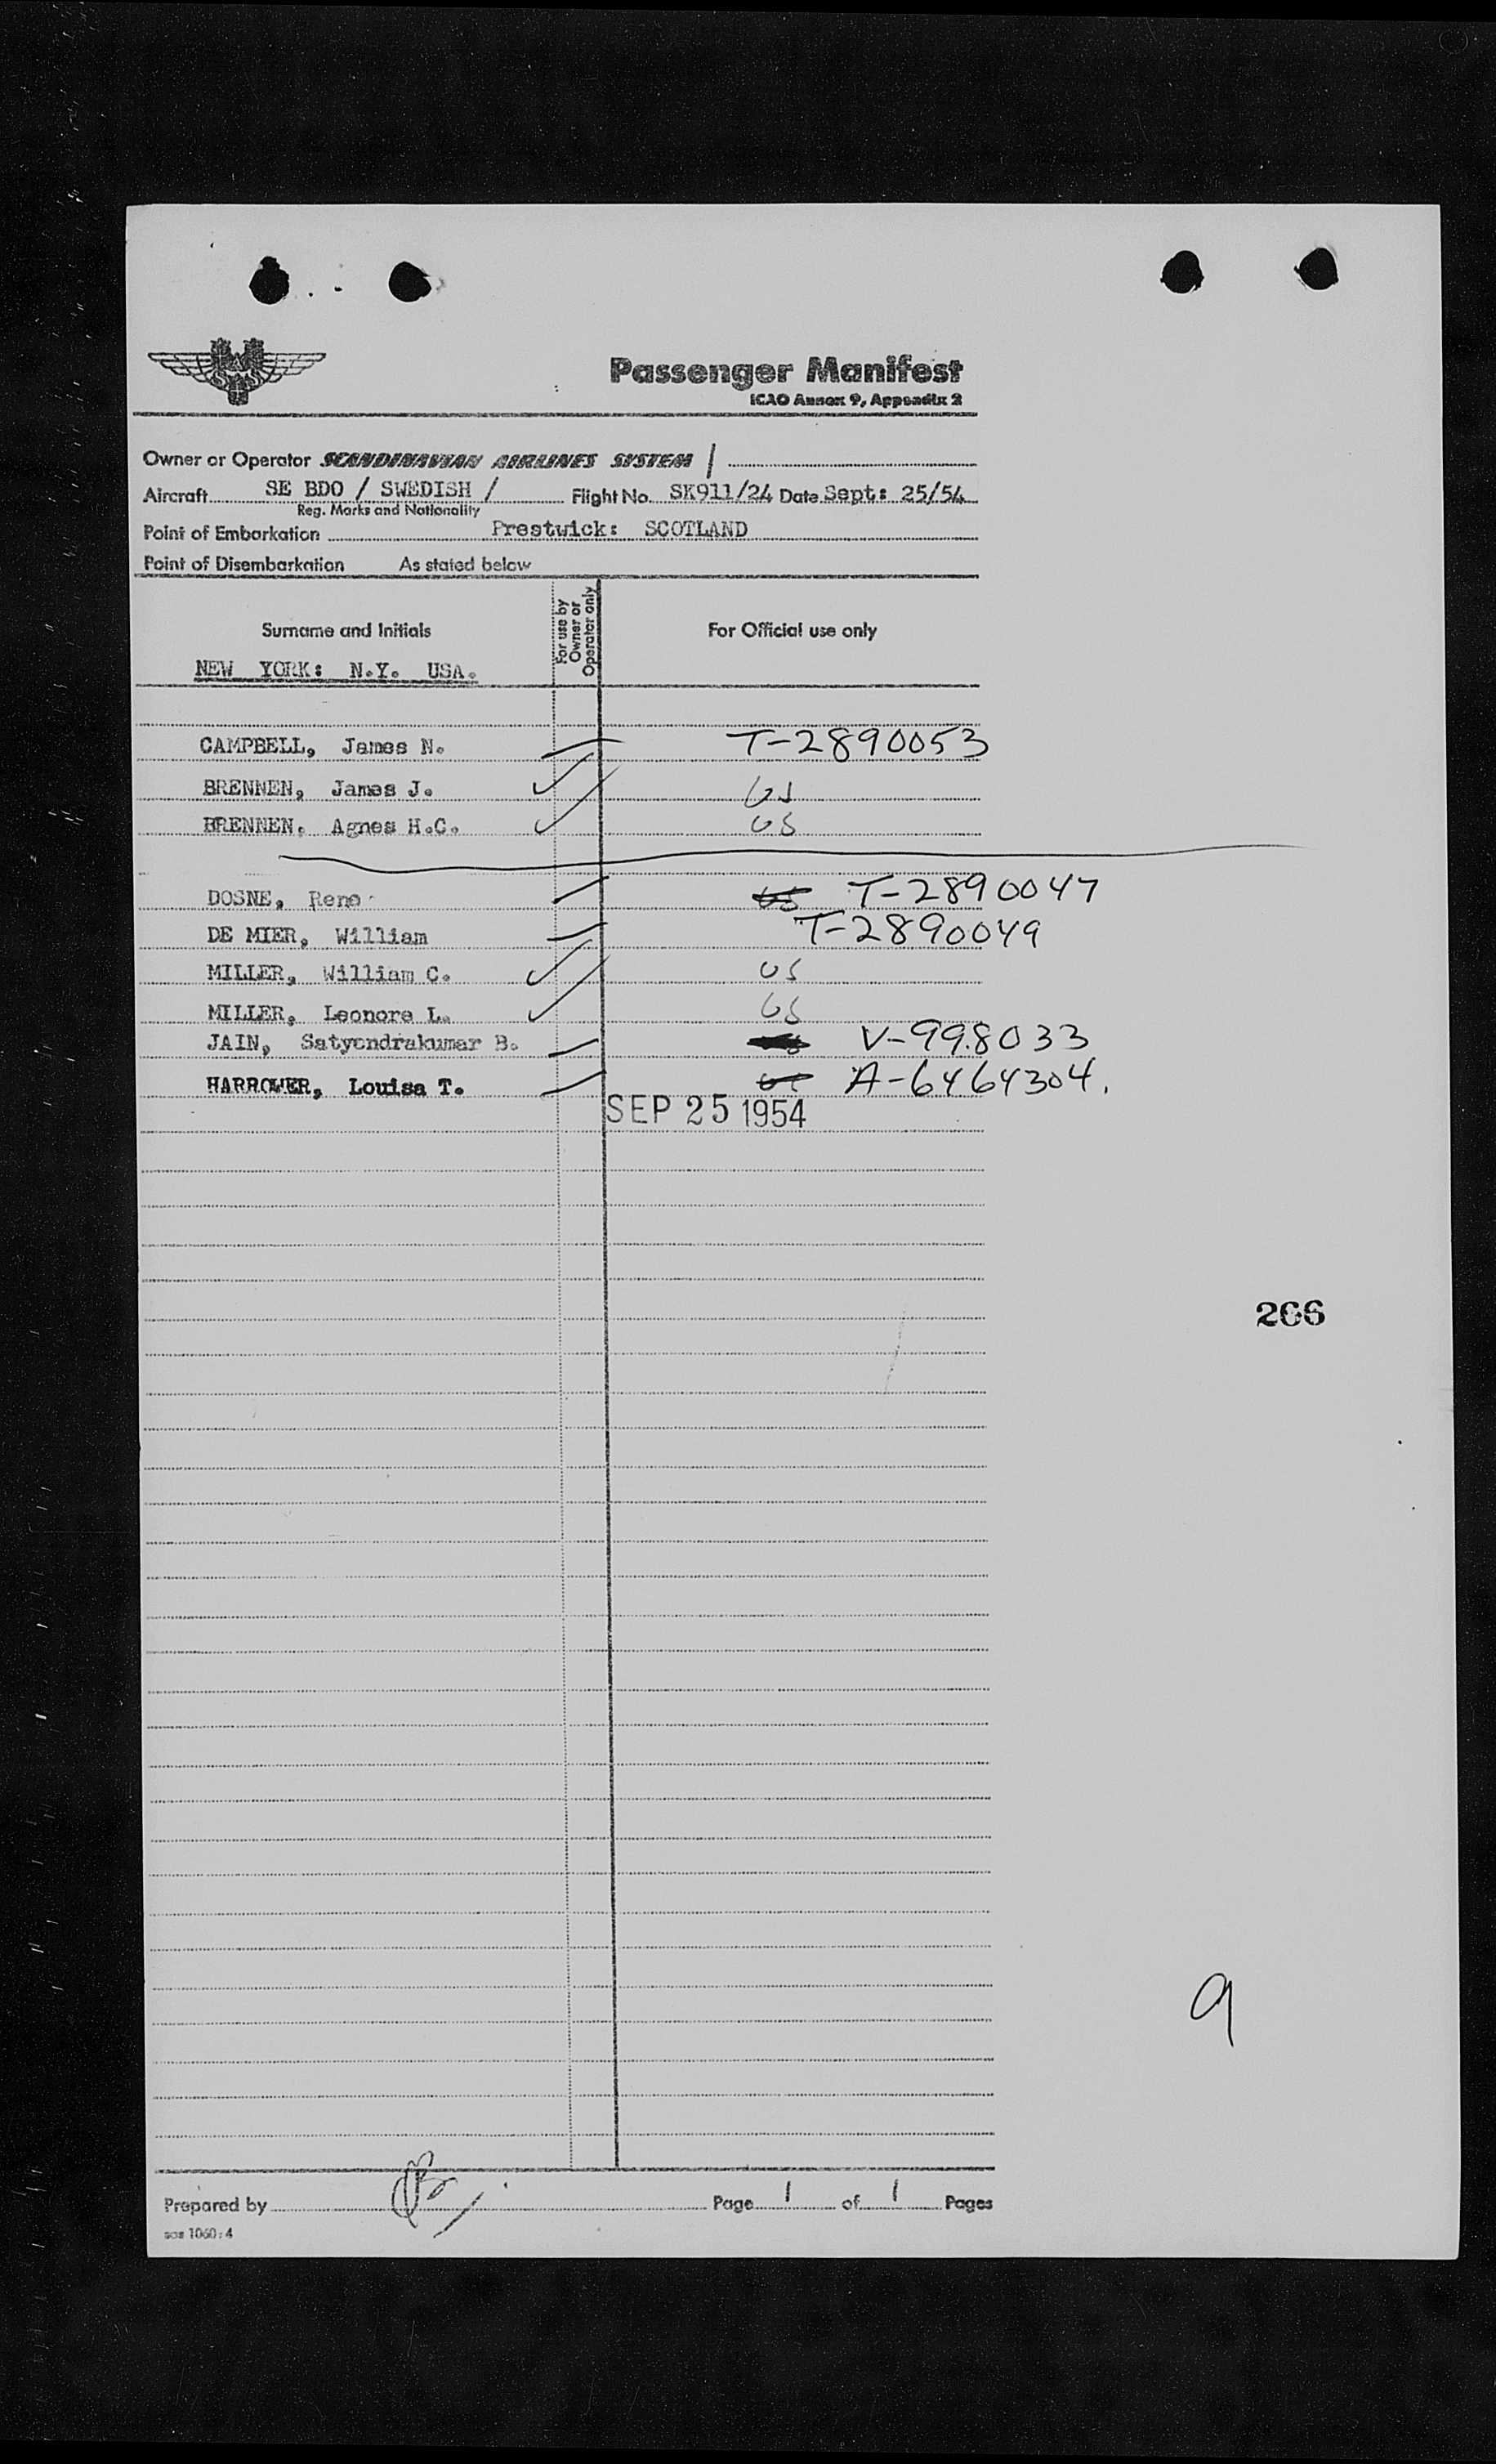 SAS
Passenger Manifest
ICAO Annex 9, Appendix 2
Owner or Operator SCANDINAVIAN AIRLINES SYSTEM /
Aircraft SE BDO / SWEDISH / Flight No. SK911/24 Date Sept: 25/54
Reg. Marks and Nationality
Point of Embarkation Prestwick: SCOTLAND
Point of Disembarkation As stated below
Surname and Initials For use by Owner or Operator only For Official use only
NEW YORK: N.Y. USA.
CAMPBELL, James N. T-2890053
BRENNEN, James J. US
BRENNEN. Agnes H.C. US
DOSNE, Rene US T-2890047
DE MIER, William T-2890049
MILLER, William C. US
MILLER, Leonore L. US
JAIN, Satyendrakumar B. V-998033
HARROWER, Louisa T. A-6464304.
SEP 25 1954
266
9
Prepared by Page 1 of 1 Pages
sas 1060:4